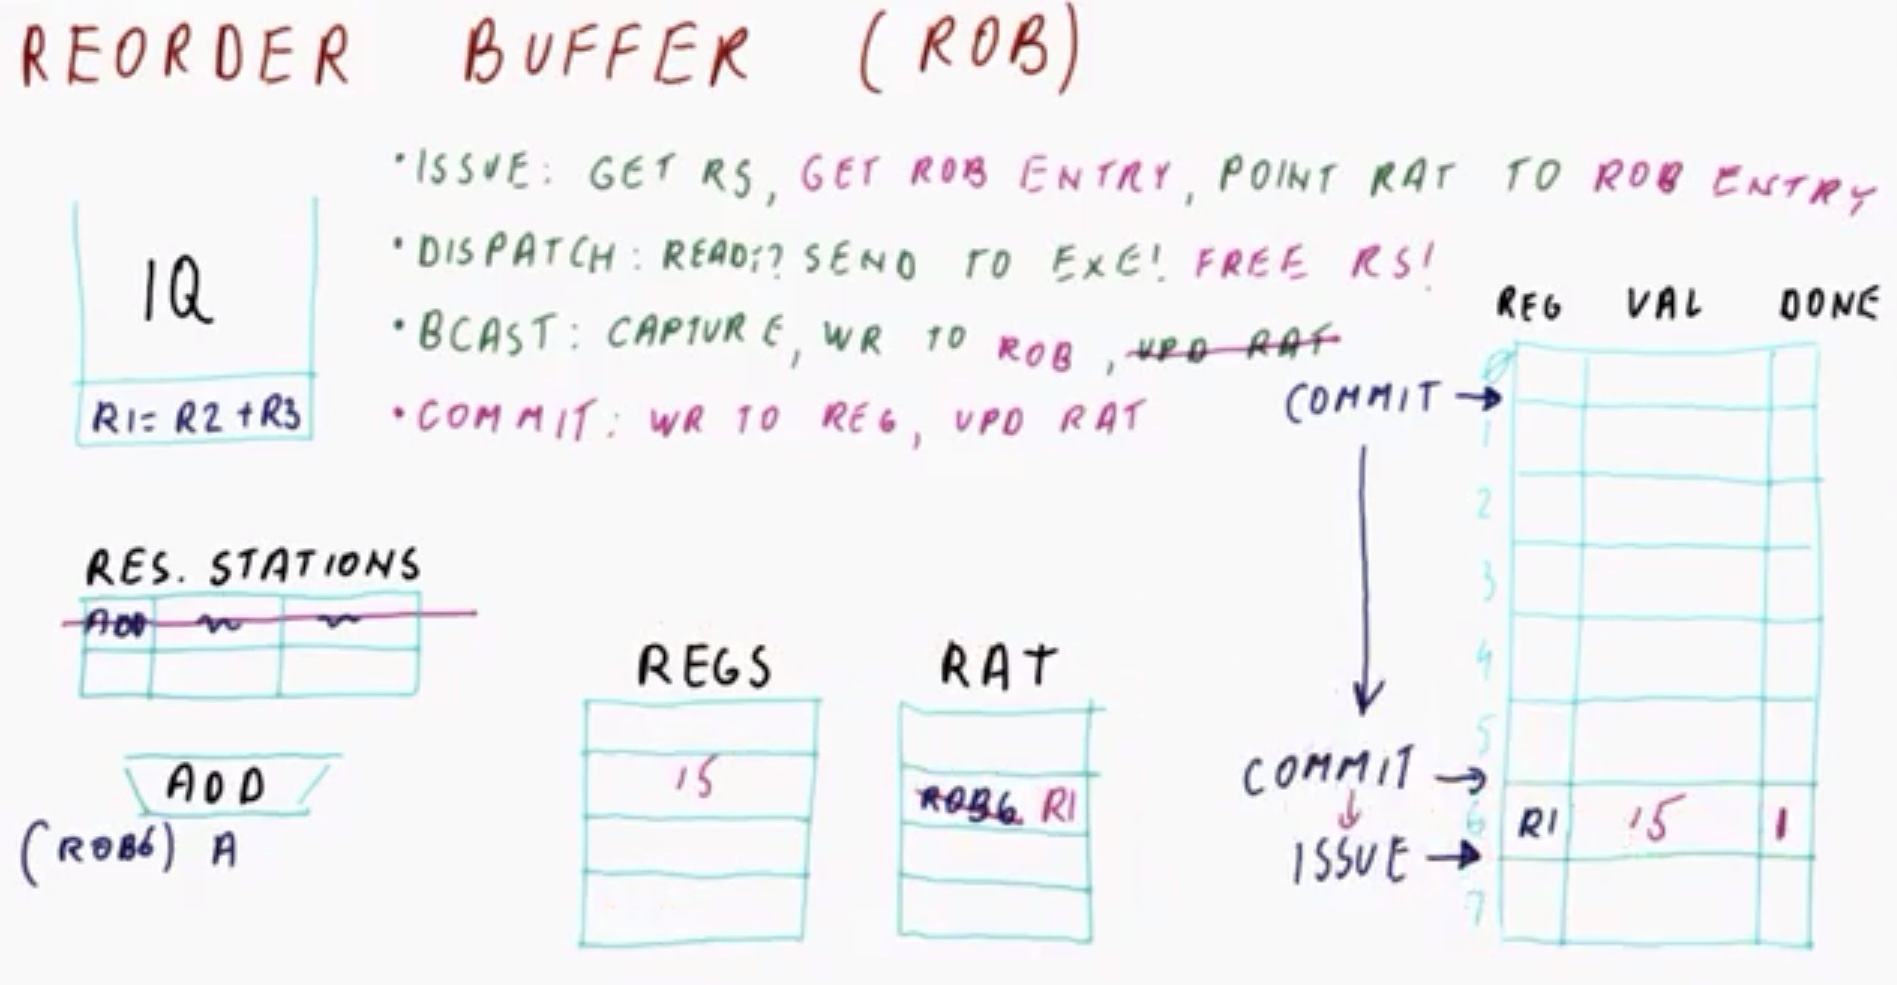 REORDER BUFFER (ROB)
• ISSUE: GET RS, GET ROB ENTRY, POINT RAT TO ROB ENTRY
• DISPATCH: READY? SEND TO EXE! FREE RS!
• BCAST: CAPTURE, WR TO ROB, UPD RAT
• COMMIT: WR TO REG, UPD RAT
IQ
R1= R2 + R3
RES. STATIONS
ADD
ADD
(ROB6) A
REGS
15
RAT
ROB6 R1
COMMIT →
COMMIT →
ISSUE →
REG VAL DONE
0
1
2
3
4
5
6 R1 15 1
7